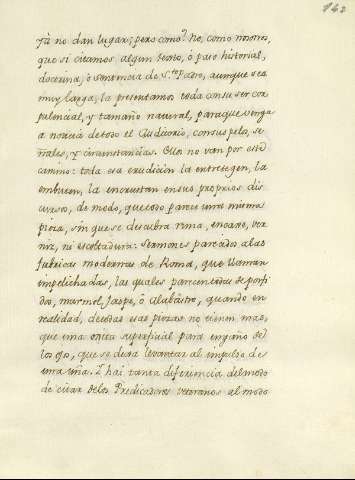 142
yà no dan lugar; pero como? No, como nosotros,
que si citamos algun texto, ò paso historial,
doctrina, ò sentencia de S.to Padre, aunque sea
muy larga, la presentamos toda con su ser cor
pulencia, y tamaño natural, para que venga
a noticia de todo el Auditorio, con sus pelos, se
ñales, y circunstancias. Ellos no van por este
camino: toda esa erudicion la entretegen, la
embuten, la encrustan en sus proprios dis
cursos, de modo, que todo parece una misma
pieza, sin que se descubra rima, encaxe, ver
niz, ni escoltadura. Sermones parecidos alas
fabricas modernas de Roma, que llaman
impelichadas, las quales pareciendo de porfi
dos, marmol, Jaspe, ò Alabastro, quando en
realidad, de todas esas piezas no tienen mas,
que una costra superficial para engaño de
los ojos, que se deja levantar al impulso de
una uña. Y hai tanta diferencia del modo
de citar de los Predicadores veteranos al modo